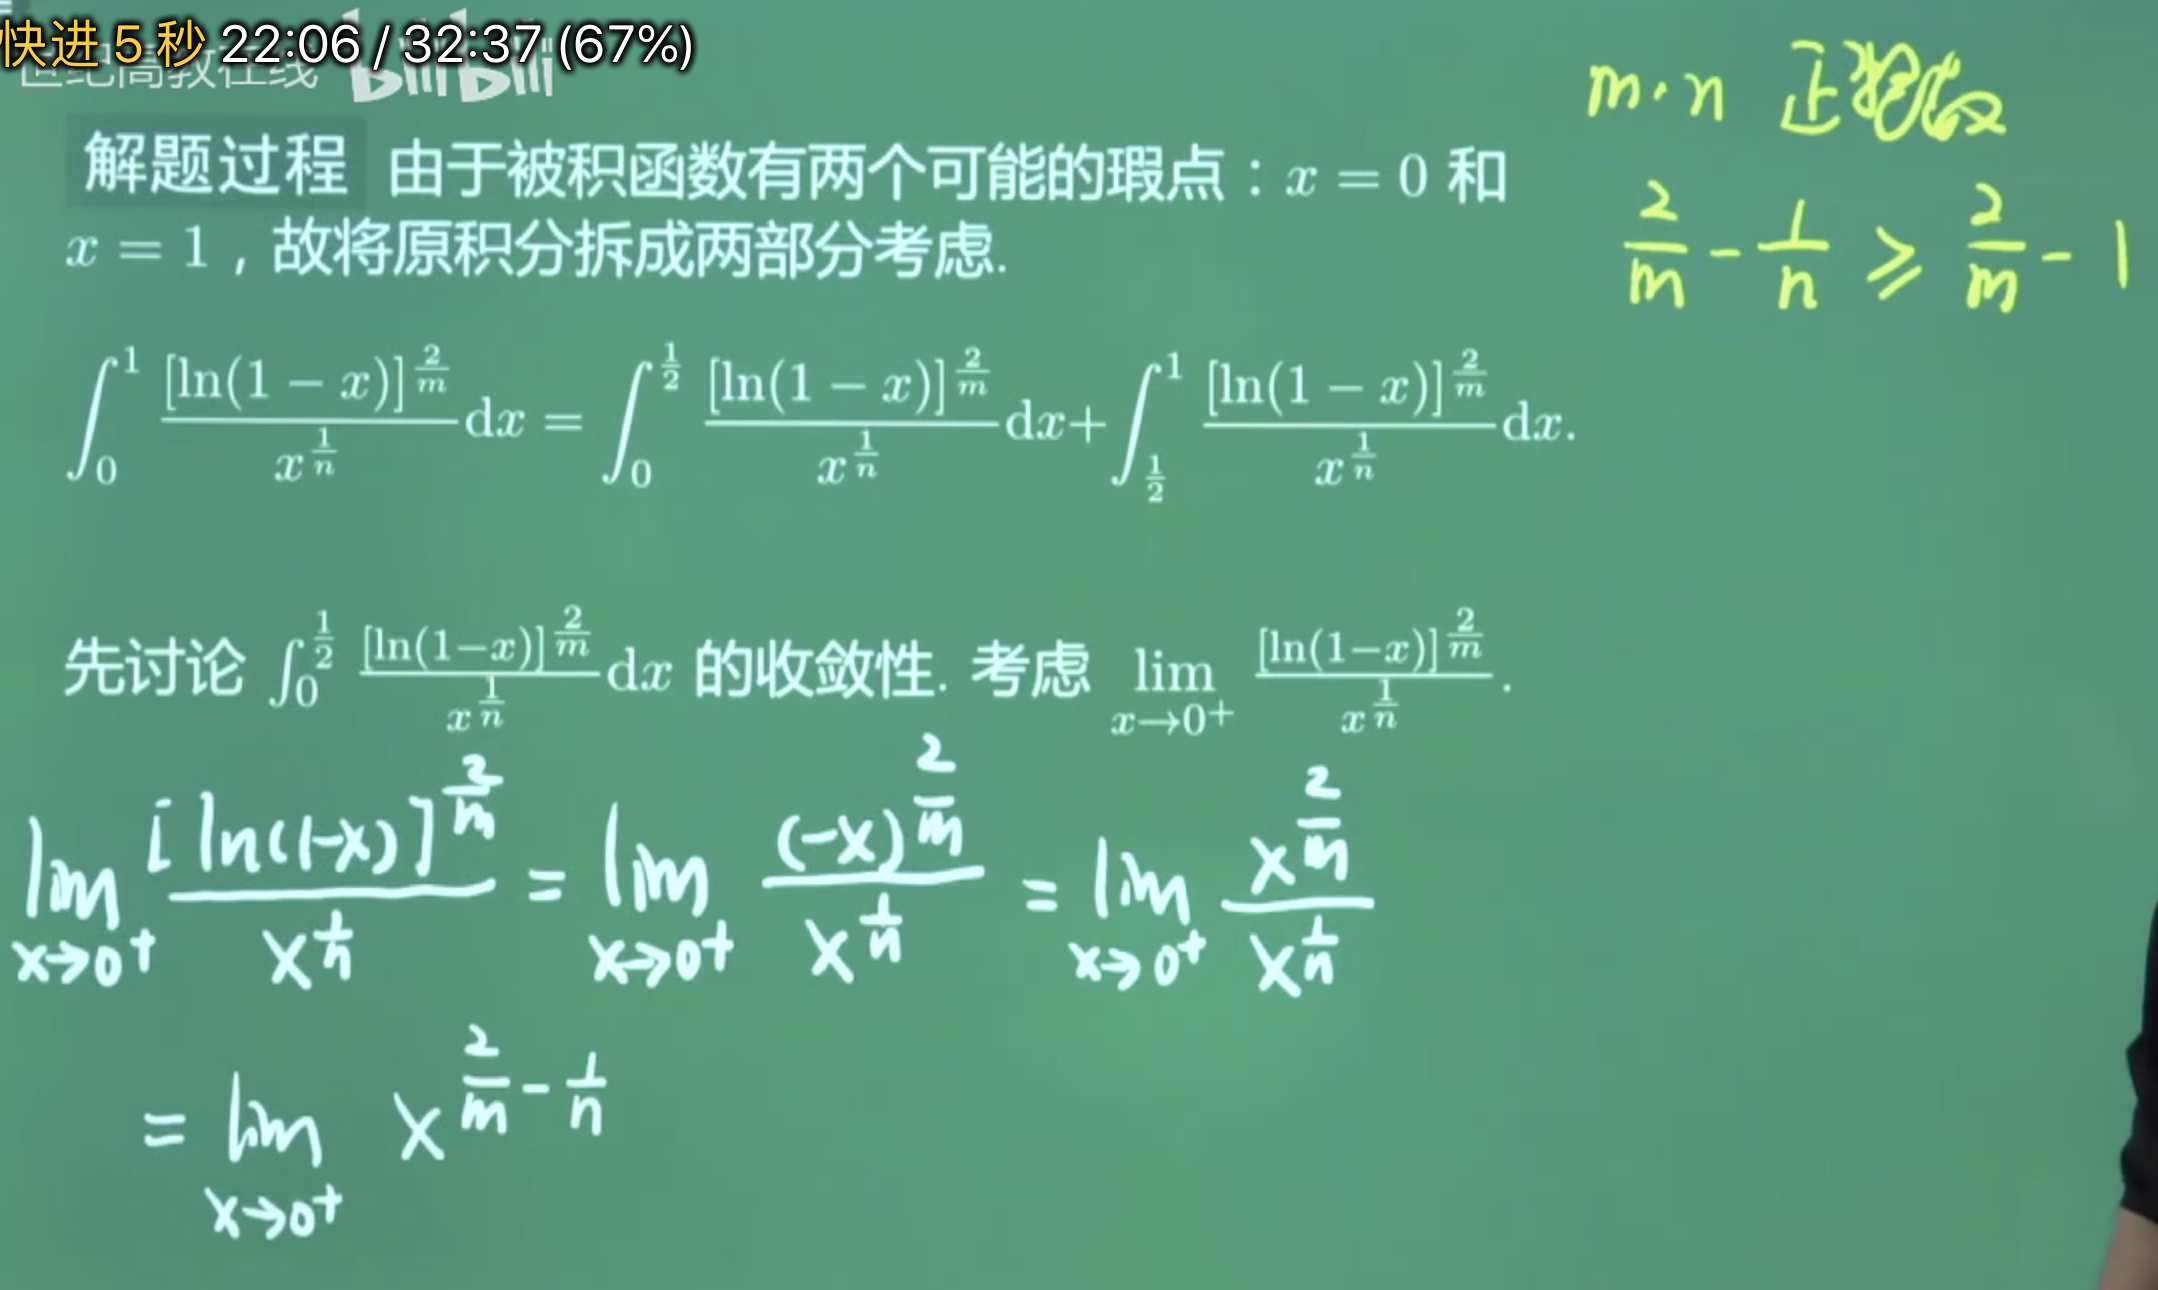 快进 5 秒 22:06 / 32:37 (67%)
世纪高教在线 bilibili
m·n 正整数
2/m - 1/n ≥ 2/m - 1
解题过程 由于被积函数有两个可能的瑕点：x = 0 和
x = 1，故将原积分拆成两部分考虑.
∫_0^1 [ln(1 − x)]^{2/m} / x^{1/n} dx = ∫_0^{1/2} [ln(1 − x)]^{2/m} / x^{1/n} dx + ∫_{1/2}^1 [ln(1 − x)]^{2/m} / x^{1/n} dx.
先讨论 ∫_0^{1/2} [ln(1−x)]^{2/m} / x^{1/n} dx 的收敛性. 考虑 lim_{x→0⁺} [ln(1−x)]^{2/m} / x^{1/n}.
lim_{x→0⁺} [ln(1-x)]^{2/m} / x^{1/n} = lim_{x→0⁺} (-x)^{2/m} / x^{1/n} = lim_{x→0⁺} x^{2/m} / x^{1/n}
= lim_{x→0⁺} x^{2/m - 1/n}